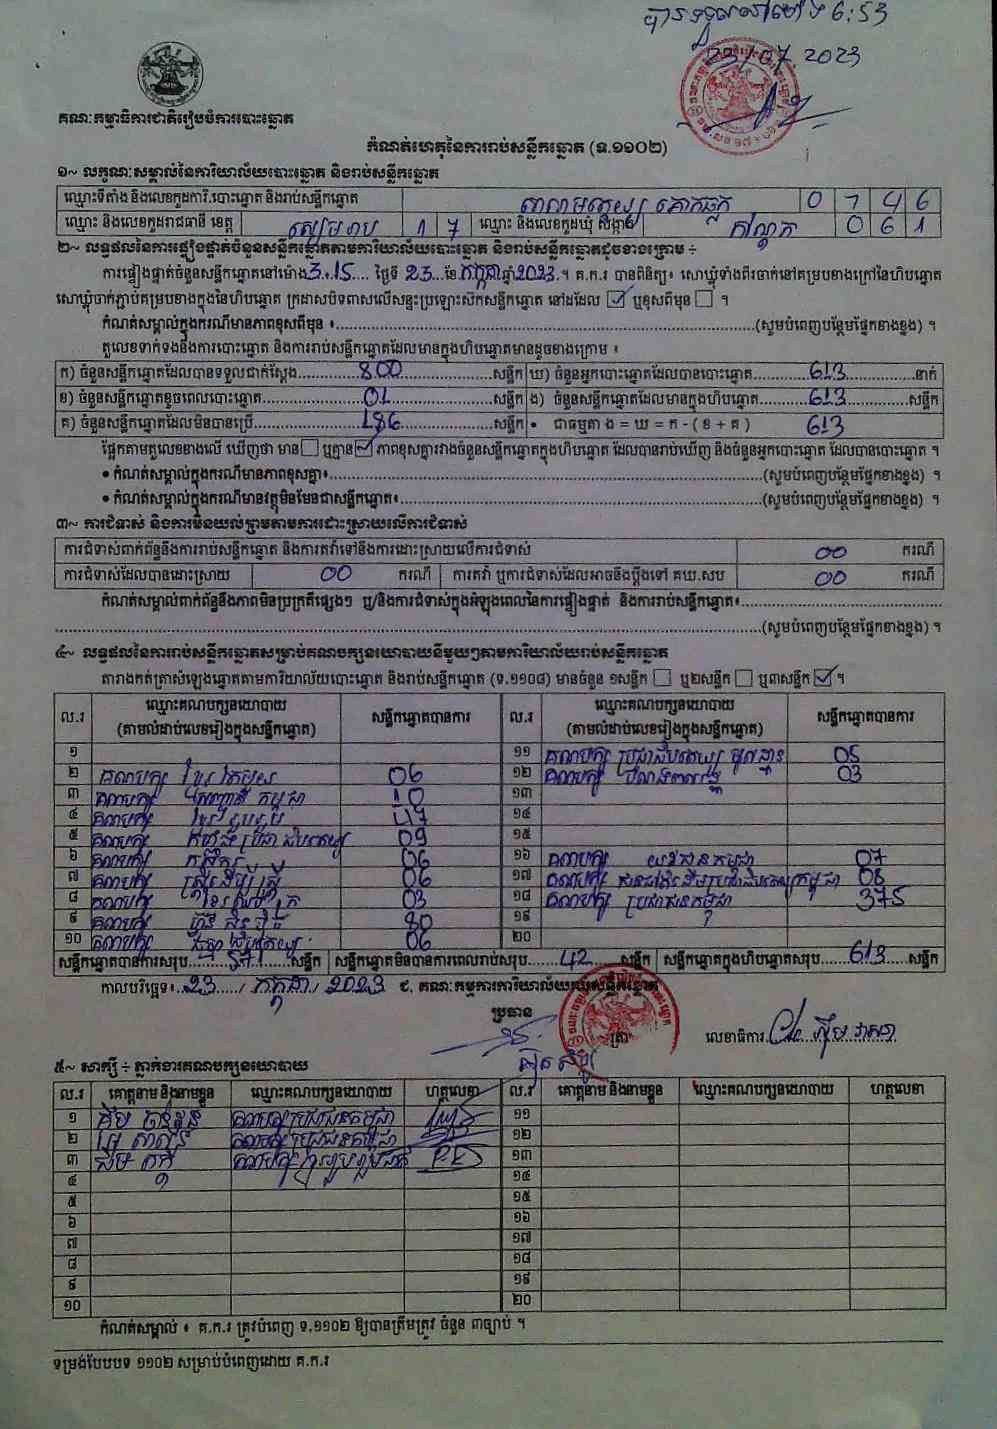 បានទទួលនៅម៉ោង 6:53
23/07 2023
គណៈកម្មាធិការជាតិរៀបចំការបោះឆ្នោត
កំណត់ហេតុនៃការរាប់សន្លឹកឆ្នោត (ទ.១១០២)
១~ លក្ខណៈសម្គាល់នៃការិយាល័យបោះឆ្នោត និងរាប់សន្លឹកឆ្នោត
ឈ្មោះទីតាំង និងលេខកូដការិ.បោះឆ្នោត និងរាប់សន្លឹកឆ្នោត 0 7 4 6
ឈ្មោះ និងលេខកូដរាជធានី ខេត្ត សៀមរាប 1 7 ឈ្មោះ និងលេខកូដឃុំ សង្កាត់ កណ្តែក 0 6 1
២~ លទ្ធផលនៃការផ្ទៀងផ្ទាត់ចំនួនសន្លឹកឆ្នោតតាមការិយាល័យបោះឆ្នោត និងរាប់សន្លឹកឆ្នោតដូចខាងក្រោម ÷
ការផ្ទៀងផ្ទាត់ចំនួនសន្លឹកឆ្នោតនៅម៉ោង 3:15 ថ្ងៃទី 23 ខែ កក្កដា ឆ្នាំ 2023 ។ គ.ក.រ បានពិនិត្យ៖ សោឃ្មុំទាំងពីរចាក់នៅគម្របខាងក្រៅនៃហិបឆ្នោត
សោឃ្មុំចាក់ភ្ជាប់គម្របខាងក្នុងនៃហិបឆ្នោត ក្រដាសបិទពាសលើសន្ទះប្រឡោះសិកសន្លឹកឆ្នោត នៅដដែល ☑ ឬខុសពីមុន ☐ ។
កំណត់សម្គាល់ក្នុងករណីមានភាពខុសពីមុន ៖ (សូមបំពេញបន្ថែមផ្នែកខាងខ្នង) ។
តួលេខទាក់ទងនឹងការបោះឆ្នោត និងការរាប់សន្លឹកឆ្នោតដែលមានក្នុងហិបឆ្នោតមានដូចខាងក្រោម ៖
ក) ចំនួនសន្លឹកឆ្នោតដែលបានទទួលជាក់ស្តែង 800 សន្លឹក ឃ) ចំនួនអ្នកបោះឆ្នោតដែលបានបោះឆ្នោត 613 នាក់
ខ) ចំនួនសន្លឹកឆ្នោតខូចពេលបោះឆ្នោត 01 សន្លឹក ង) ចំនួនសន្លឹកឆ្នោតដែលមានក្នុងហិបឆ្នោត 613 សន្លឹក
គ) ចំនួនសន្លឹកឆ្នោតដែលមិនបានប្រើ 186 សន្លឹក • ជាធម្មតា ង = ឃ = ក - ( ខ + គ ) 613
ផ្អែកតាមតួលេខខាងលើ ឃើញថា មាន ☐ ឬគ្មាន ☑ ភាពខុសគ្នារវាងចំនួនសន្លឹកឆ្នោតក្នុងហិបឆ្នោត ដែលបានរាប់ឃើញ និងចំនួនអ្នកបោះឆ្នោត ដែលបានបោះឆ្នោត ។
• កំណត់សម្គាល់ក្នុងករណីមានភាពខុសគ្នា៖ (សូមបំពេញបន្ថែមផ្នែកខាងខ្នង) ។
• កំណត់សម្គាល់ក្នុងករណីមានវត្ថុមិនមែនជាសន្លឹកឆ្នោត៖ (សូមបំពេញបន្ថែមផ្នែកខាងខ្នង) ។
៣~ ការជំទាស់ និងការមិនយល់ព្រមតាមការដោះស្រាយលើការជំទាស់
ការជំទាស់ពាក់ព័ន្ធនឹងការរាប់សន្លឹកឆ្នោត និងការតវ៉ាទៅនឹងការដោះស្រាយលើការជំទាស់ 00 ករណី
ការជំទាស់ដែលបានដោះស្រាយ 00 ករណី ការតវ៉ា ឬការជំទាស់ដែលអាចនឹងប្តឹងទៅ គឃ.សប 00 ករណី
កំណត់សម្គាល់ពាក់ព័ន្ធនឹងភាពមិនប្រក្រតីផ្សេងៗ ឬ/និងការជំទាស់ក្នុងអំឡុងពេលនៃការផ្ទៀងផ្ទាត់ និងការរាប់សន្លឹកឆ្នោត៖
(សូមបំពេញបន្ថែមផ្នែកខាងខ្នង) ។
៤~ លទ្ធផលនៃការរាប់សន្លឹកឆ្នោតសម្រាប់គណបក្សនយោបាយនីមួយៗតាមការិយាល័យរាប់សន្លឹកឆ្នោត
តារាងកត់ត្រាសំឡេងឆ្នោតតាមការិយាល័យបោះឆ្នោត និងរាប់សន្លឹកឆ្នោត (ទ.១១០៨) មានចំនួន ១សន្លឹក ☐ ឬ២សន្លឹក ☐ ឬ៣សន្លឹក ☑ ។
ល.រ ឈ្មោះគណបក្សនយោបាយ (តាមលំដាប់លេខរៀងក្នុងសន្លឹកឆ្នោត) សន្លឹកឆ្នោតបានការ ល.រ ឈ្មោះគណបក្សនយោបាយ (តាមលំដាប់លេខរៀងក្នុងសន្លឹកឆ្នោត) សន្លឹកឆ្នោតបានការ
១ ១១ គណបក្ស ប្រជាធិបតេយ្យ មូលដ្ឋាន 05
២ គណបក្ស ខ្មែរ 06 ១២ គណបក្ស 03
៣ គណបក្ស សញ្ជាតិ កម្ពុជា 10 ១៣
៤ គណបក្ស ខ្មែរ រួបរួម ១៤
៥ គណបក្ស សំបុកឃ្មុំ 09 ១៥
៦ គណបក្ស កសិករ 06 ១៦ គណបក្ស យុវជនកម្ពុជា 07
៧ គណបក្ស ស្ត្រីដើម្បីស្ត្រី 06 ១៧ គណបក្ស ប្រជាធិបតេយ្យកម្ពុជា 06
៨ គណបក្ស ខ្មែរ 03 ១៨ គណបក្ស ប្រជាជនកម្ពុជា 375
៩ គណបក្ស ហ៊្វុនស៊ិនប៉ិច 80 ១៩
១០ គណបក្ស 06 ២០
សន្លឹកឆ្នោតបានការសរុប 571 សន្លឹក សន្លឹកឆ្នោតមិនបានការពេលរាប់សរុប 42 សន្លឹក សន្លឹកឆ្នោតក្នុងហិបឆ្នោតសរុប 613 សន្លឹក
កាលបរិច្ឆេទ៖ 23 / កក្កដា / 2023 ជ. គណៈកម្មការការិយាល័យរាប់សន្លឹកឆ្នោត
ប្រធាន ត្រា លេខាធិការ
៥~ សាក្សី ÷ ភ្នាក់ងារគណបក្សនយោបាយ
ល.រ គោត្តនាម និងនាមខ្លួន ឈ្មោះគណបក្សនយោបាយ ហត្ថលេខា ល.រ គោត្តនាម និងនាមខ្លួន ឈ្មោះគណបក្សនយោបាយ ហត្ថលេខា
១ គណបក្សប្រជាជនកម្ពុជា ១១
២ គណបក្សប្រជាជនកម្ពុជា ១២
៣ គណបក្ស ១៣
៤ ១៤
៥ ១៥
៦ ១៦
៧ ១៧
៨ ១៨
៩ ១៩
១០ ២០
កំណត់សម្គាល់ ៖ គ.ក.រ ត្រូវបំពេញ ទ.១១០២ ឱ្យបានត្រឹមត្រូវ ចំនួន ៣ច្បាប់ ។
ទម្រង់បែបបទ ១១០២ សម្រាប់បំពេញដោយ គ.ក.រ